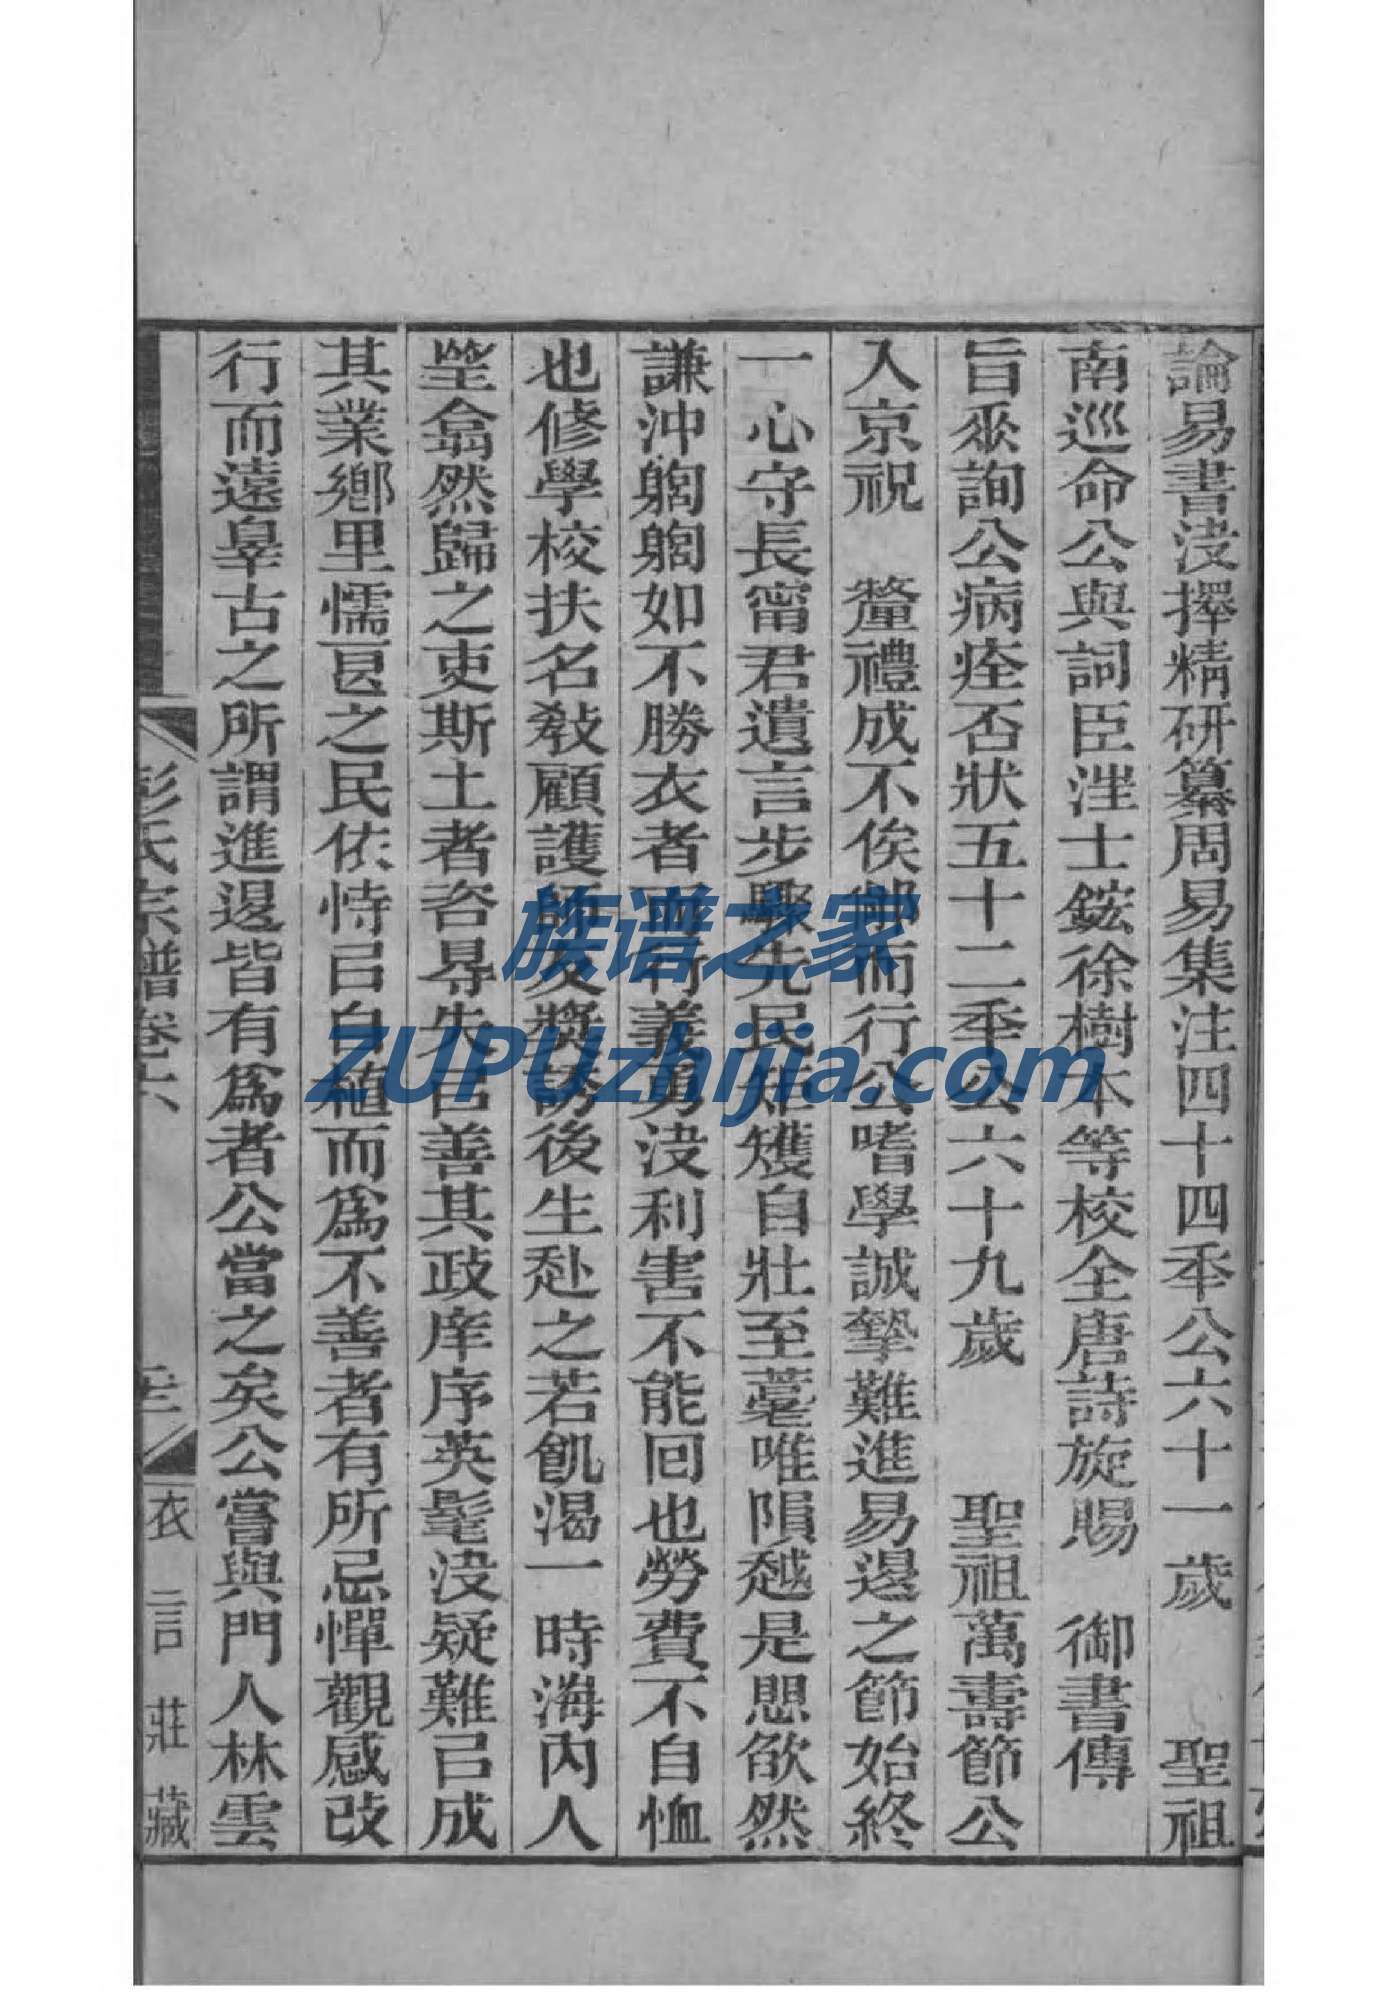 論易書洖擇精研纂周易集注四十四秊公六十一歲 聖祖
南巡命公與詞臣汪士鋐徐樹本等校全唐詩旋賜 御書傳
旨垂詢公病痊否狀五十二秊公六十九歲 聖祖萬壽節公
入京祝 釐禮成不俟郷而行公嗜學誠摯難進易退之節始終
一心守長甯君遺言步驟先民矩矱自壯至耄唯隕越是思欿然
謙沖躹躹如不勝衣者而行義勇決利害不能回也勞費不自恤
也修學校扶名敎顧護師友獎誘後生赴之若飢渴一時海內人
朢翕然歸之吏斯土者咨㝵失㠯善其政庠序英髦決疑難㠯成
其業鄉里懦㞋之民依恃㠯自植而爲不善者有所忌憚觀感改
行而遠辠古之所謂進退皆有爲者公當之矣公嘗與門人林雲
彭氏宗譜卷六
衣言莊藏
族谱之家
ZUPUzhijia.com